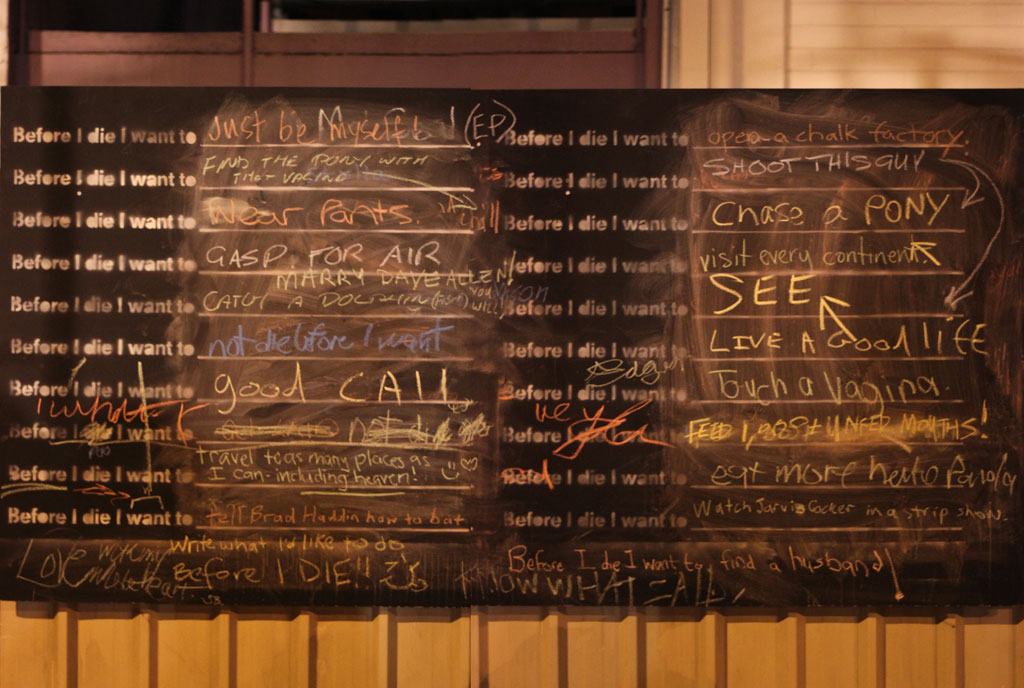 Before I die I want to Just be Myself! (EP)
Before I die I want to FIND THE PONY WITH THAT VAGINA
Before I die I want to Wear Pants.
Before I die I want to GASP FOR AIR
MARRY DAVE ALLEN!
Before I die I want to CATCH A (YOU WILL)
Before I die I want to not die before I want
Before I die I want to good CALL
Before I want to
Before I die I want to travel to as many places as I can - including heaven!
Before I die I want to tell Brad Haddin how to bat.
Write what I'd like to do
BEFORE I DIE!!
LOVE with my whole heart
Before I die I want to open a chalk factory.
Before I die I want to SHOOT THIS GUY
Before I die I want to Chase a PONY
Before I die I want to visit every continent
Before I die I want to SEE
Before I die I want to LIVE A Good life
Before I die I want to Touch a Vagina.
Before I want to FEED MOUTHS!
Before I die I want to eat more
Before I die I want to Watch Jarvis Cocker in a strip show.
Before I die I want to find a husband!
KNOW WHAT